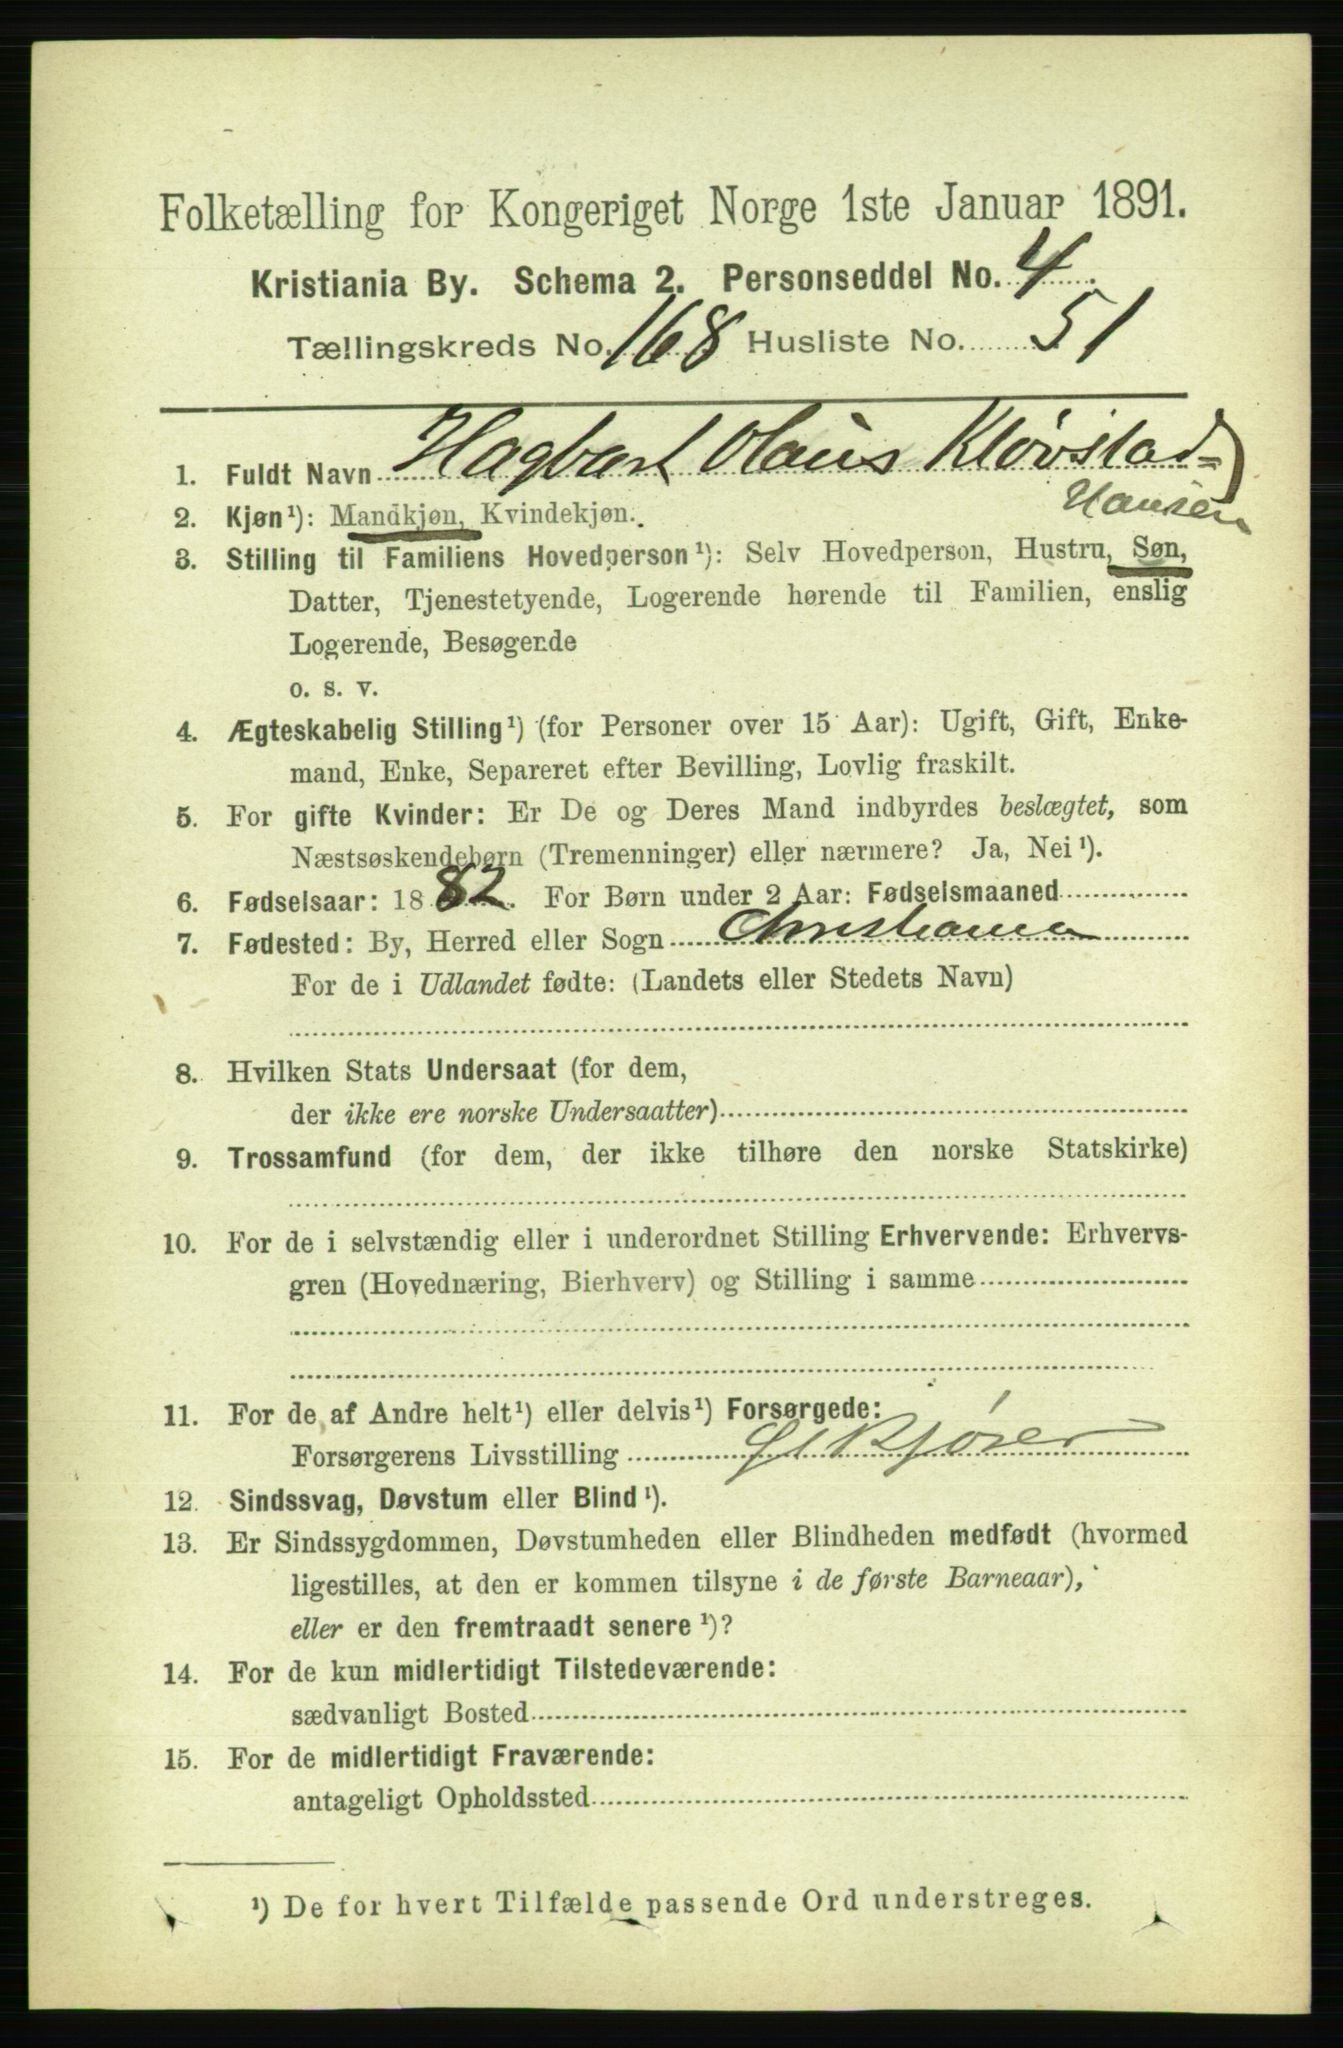 Folketælling for Kongeriget Norge 1ste Januar 1891.
Kristiania By. Schema 2. Personseddel No. 4.
Tællingskreds No. 168 Husliste No. 51
1. Fuldt Navn Hagbart Olaus Kløvstad-
Hansen
2. Kjøn¹): Mandkjøn, Kvindekjøn.
3. Stilling til Familiens Hovedperson¹): Selv Hovedperson, Hustru, Søn,
Datter, Tjenestetyende, Logerende hørende til Familien, enslig
Logerende, Besøgende
o. s. v.
4. Ægteskabelig Stilling¹) (for Personer over 15 Aar): Ugift, Gift, Enke-
mand, Enke, Separeret efter Bevilling, Lovlig fraskilt.
5. For gifte Kvinder: Er De og Deres Mand indbyrdes beslægtet, som
Næstsøskendebørn (Tremenninger) eller nærmere? Ja, Nei¹).
6. Fødselsaar: 1882. For Børn under 2 Aar: Fødselsmaaned
7. Fødested: By, Herred eller Sogn Christiania
For de i Udlandet fødte: (Landets eller Stedets Navn)
8. Hvilken Stats Undersaat (for dem,
der ikke ere norske Undersaatter)
9. Trossamfund (for dem, der ikke tilhøre den norske Statskirke)
10. For de i selvstændig eller i underordnet Stilling Erhvervende: Erhvervs-
gren (Hovednæring, Bierhverv) og Stilling i samme
11. For de af Andre helt¹) eller delvis¹) Forsørgede:
Forsørgerens Livsstilling
12. Sindssvag, Døvstum eller Blind¹).
13. Er Sindssygdommen, Døvstumheden eller Blindheden medfødt (hvormed
ligestilles, at den er kommen tilsyne i de første Barneaar),
eller er den fremtraadt senere¹)?
14. For de kun midlertidigt Tilstedeværende:
sædvanligt Bosted
15. For de midlertidigt Fraværende:
antageligt Opholdssted
¹) De for hvert Tilfælde passende Ord understreges.